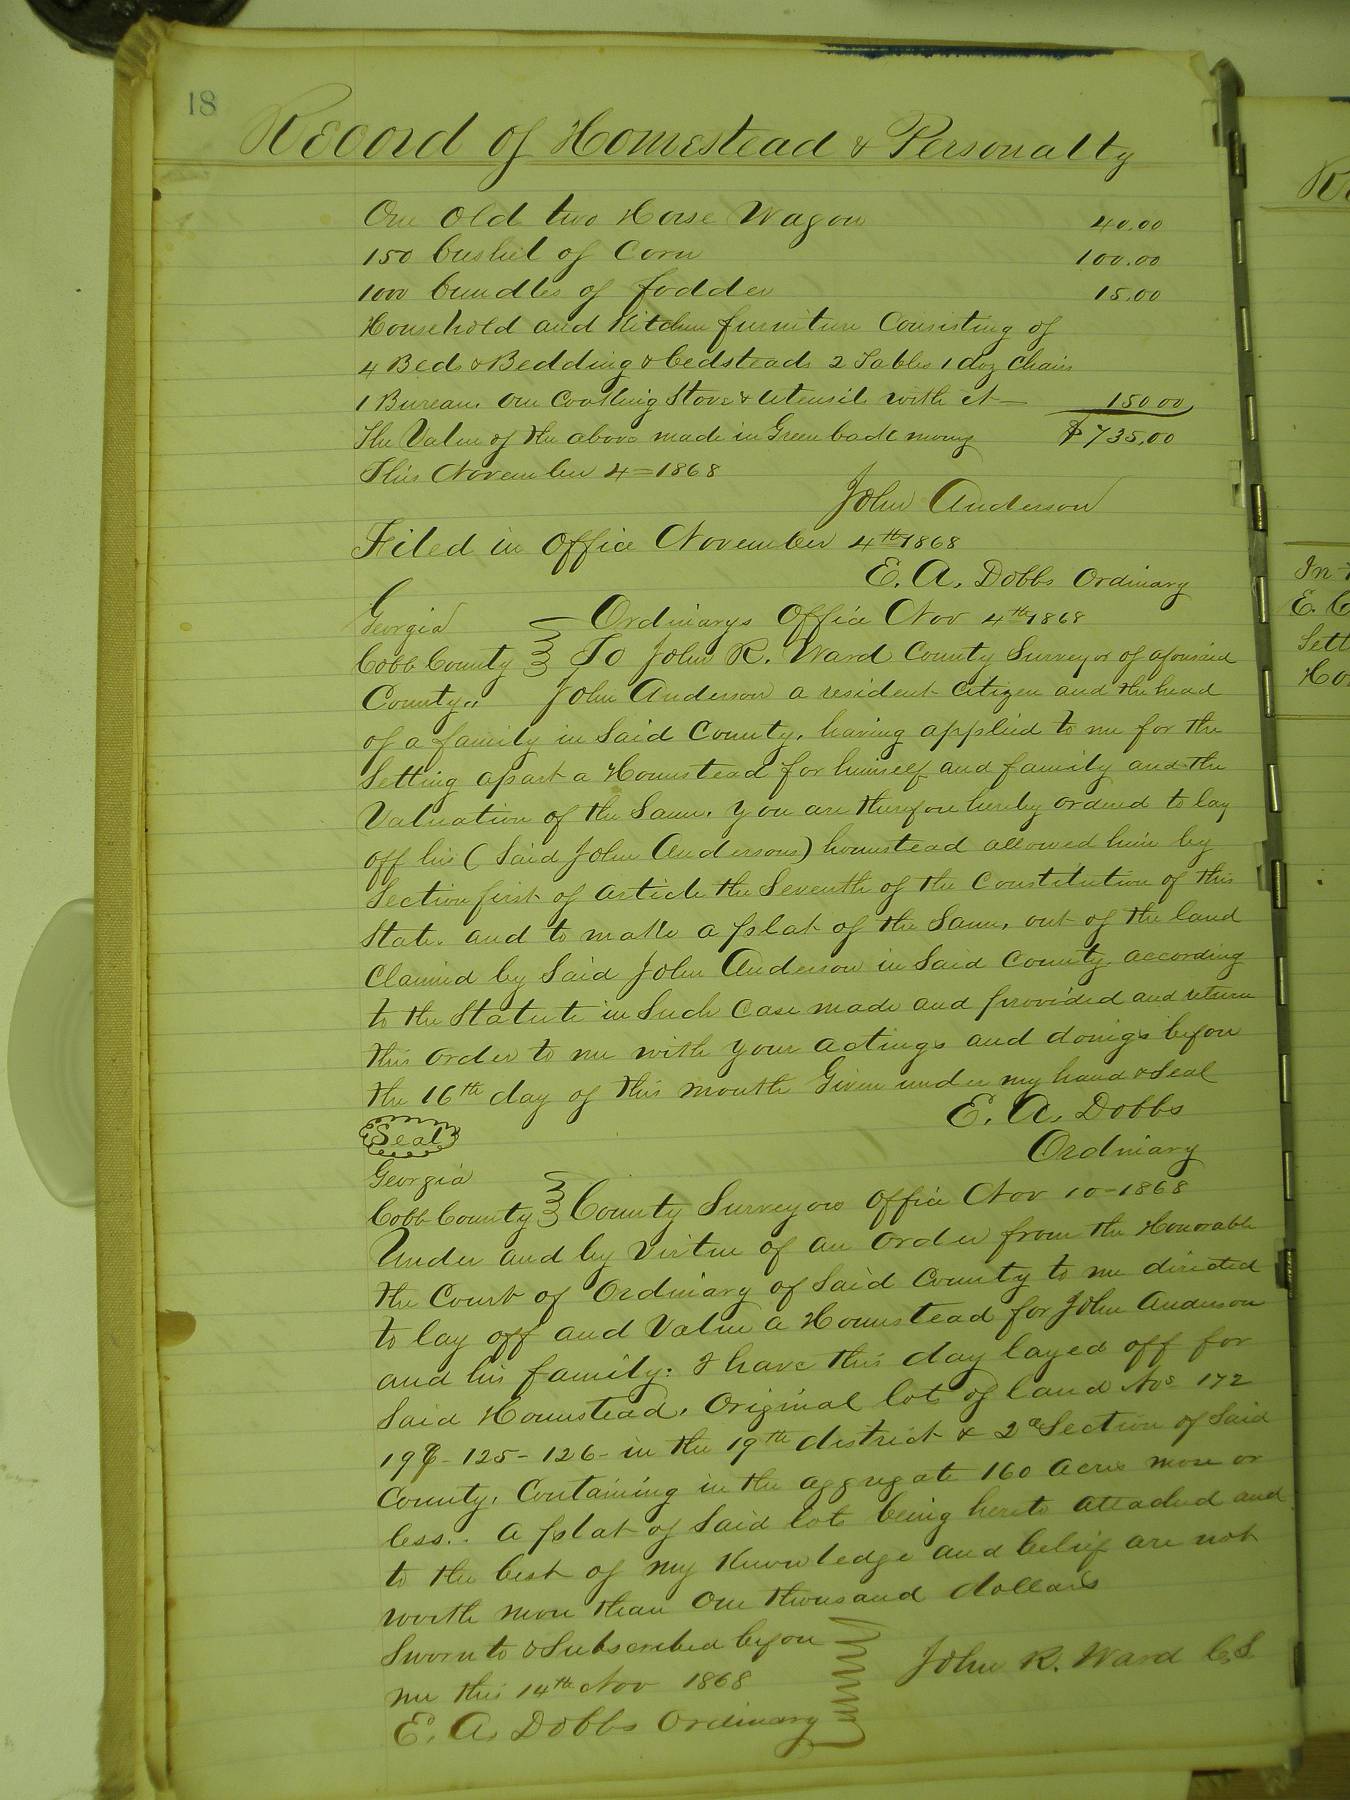 18
Record of Homestead & Personalty
One old two Horse Wagon 40.00
150 bushel of Corn 100.00
1000 bundles of fodder 15.00
Household and Kitchen furniture Consisting of
4 Beds & Bedding & bedsteads 2 Tables 1 doz Chairs
1 Bureau. One Cooking Stove & utensil with it 150 00
The Value of the above made in Green back money $735,00
This November 4 = 1868
John Anderson
Filed in Office November 4th 1868
E. A. Dobbs Ordinary
Georgia Ordinarys Office Nov 4th 1868
Cobb County To John R. Ward County Surveyor of aforesaid
County,, John Anderson a resident Citizen and the head
of a family in Said County, having applied to me for the
Setting apart a Homestead for himself and family and the
Valuation of the Same. you are therefore hereby ordered to lay
off his (Said John Andersons) homestead allowed him by
Section first of article the Seventh of the Constitution of this
State. and to make a plat of the Same, out of the land
Claimed by Said John Anderson in Said County, according
to the Statute in Such Case made and provided and return
this order to me with your actings and doings before
the 16th day of this month Given under my hand & Seal
E. A. Dobbs
Seal
Ordinary
Georgia
Cobb County County Surveyors Office Nov 10-1868
Under and by Virtue of an order from the Honorable
the Court of Ordinary of Said County to me directed
to lay off and Value a Homestead for John Anderson
and his family: I have this day layed off for
Said Homestead. Original lots of land Nos 172
125-126- in the 19th district & 2d Section of Said
County. Containing in the aggregate 160 Acres more or
less.. A plat of Said lots being hereto attached and
to the best of my Knowledge and belief are not
worth more than One thousand dollars
Sworn to & Subscribed before
me this 14th Nov 1868
John R. Ward C,S
E. A. Dobbs Ordinary
In
E. C
Sett
Ho